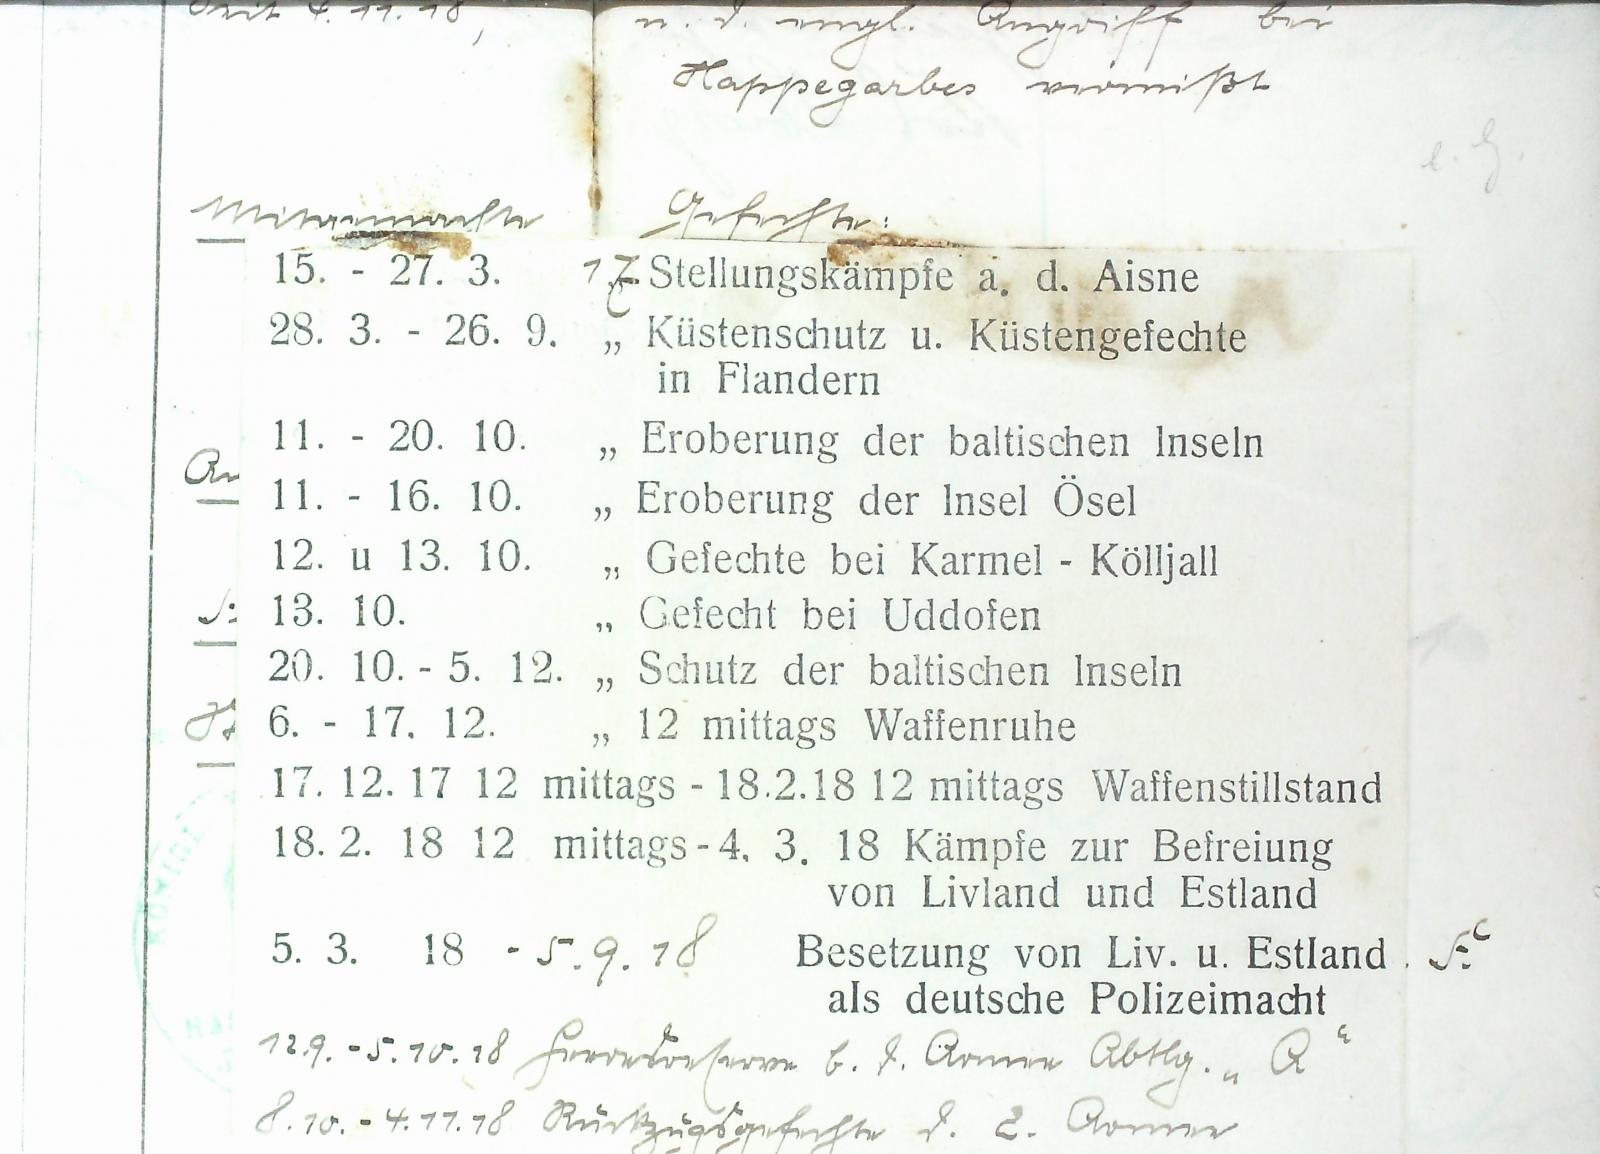 Seit 4.11.18, u. d. engl. Angriff bei
Happegarbes vermißt
e. G.
Mitgemachte Gefechte:
15. - 27. 3. 17 Stellungskämpfe a. d. Aisne
28. 3. - 26. 9. „ Küstenschutz u. Küstengefechte
in Flandern
11. - 20. 10. „ Eroberung der baltischen Inseln
An
11. - 16. 10. „ Eroberung der Insel Ösel
12. u 13. 10. „ Gefechte bei Karmel - Kölljall
13. 10. „ Gefecht bei Uddofen
20. 10. - 5. 12. „ Schutz der baltischen Inseln
6. - 17. 12. „ 12 mittags Waffenruhe
17. 12. 17 12 mittags - 18.2.18 12 mittags Waffenstillstand
18. 2. 18 12 mittags - 4. 3. 18 Kämpfe zur Befreiung
von Livland und Estland
KÖNIGL
5. 3. 18 - 5.9.18 Besetzung von Liv. u. Estland .
als deutsche Polizeimacht
12.9. - 5.10.18 Heeresreserve b. d. Armee Abtlg. „A“
8.10. - 4.11.18 Rückzugsgefechte d. 2. Armee